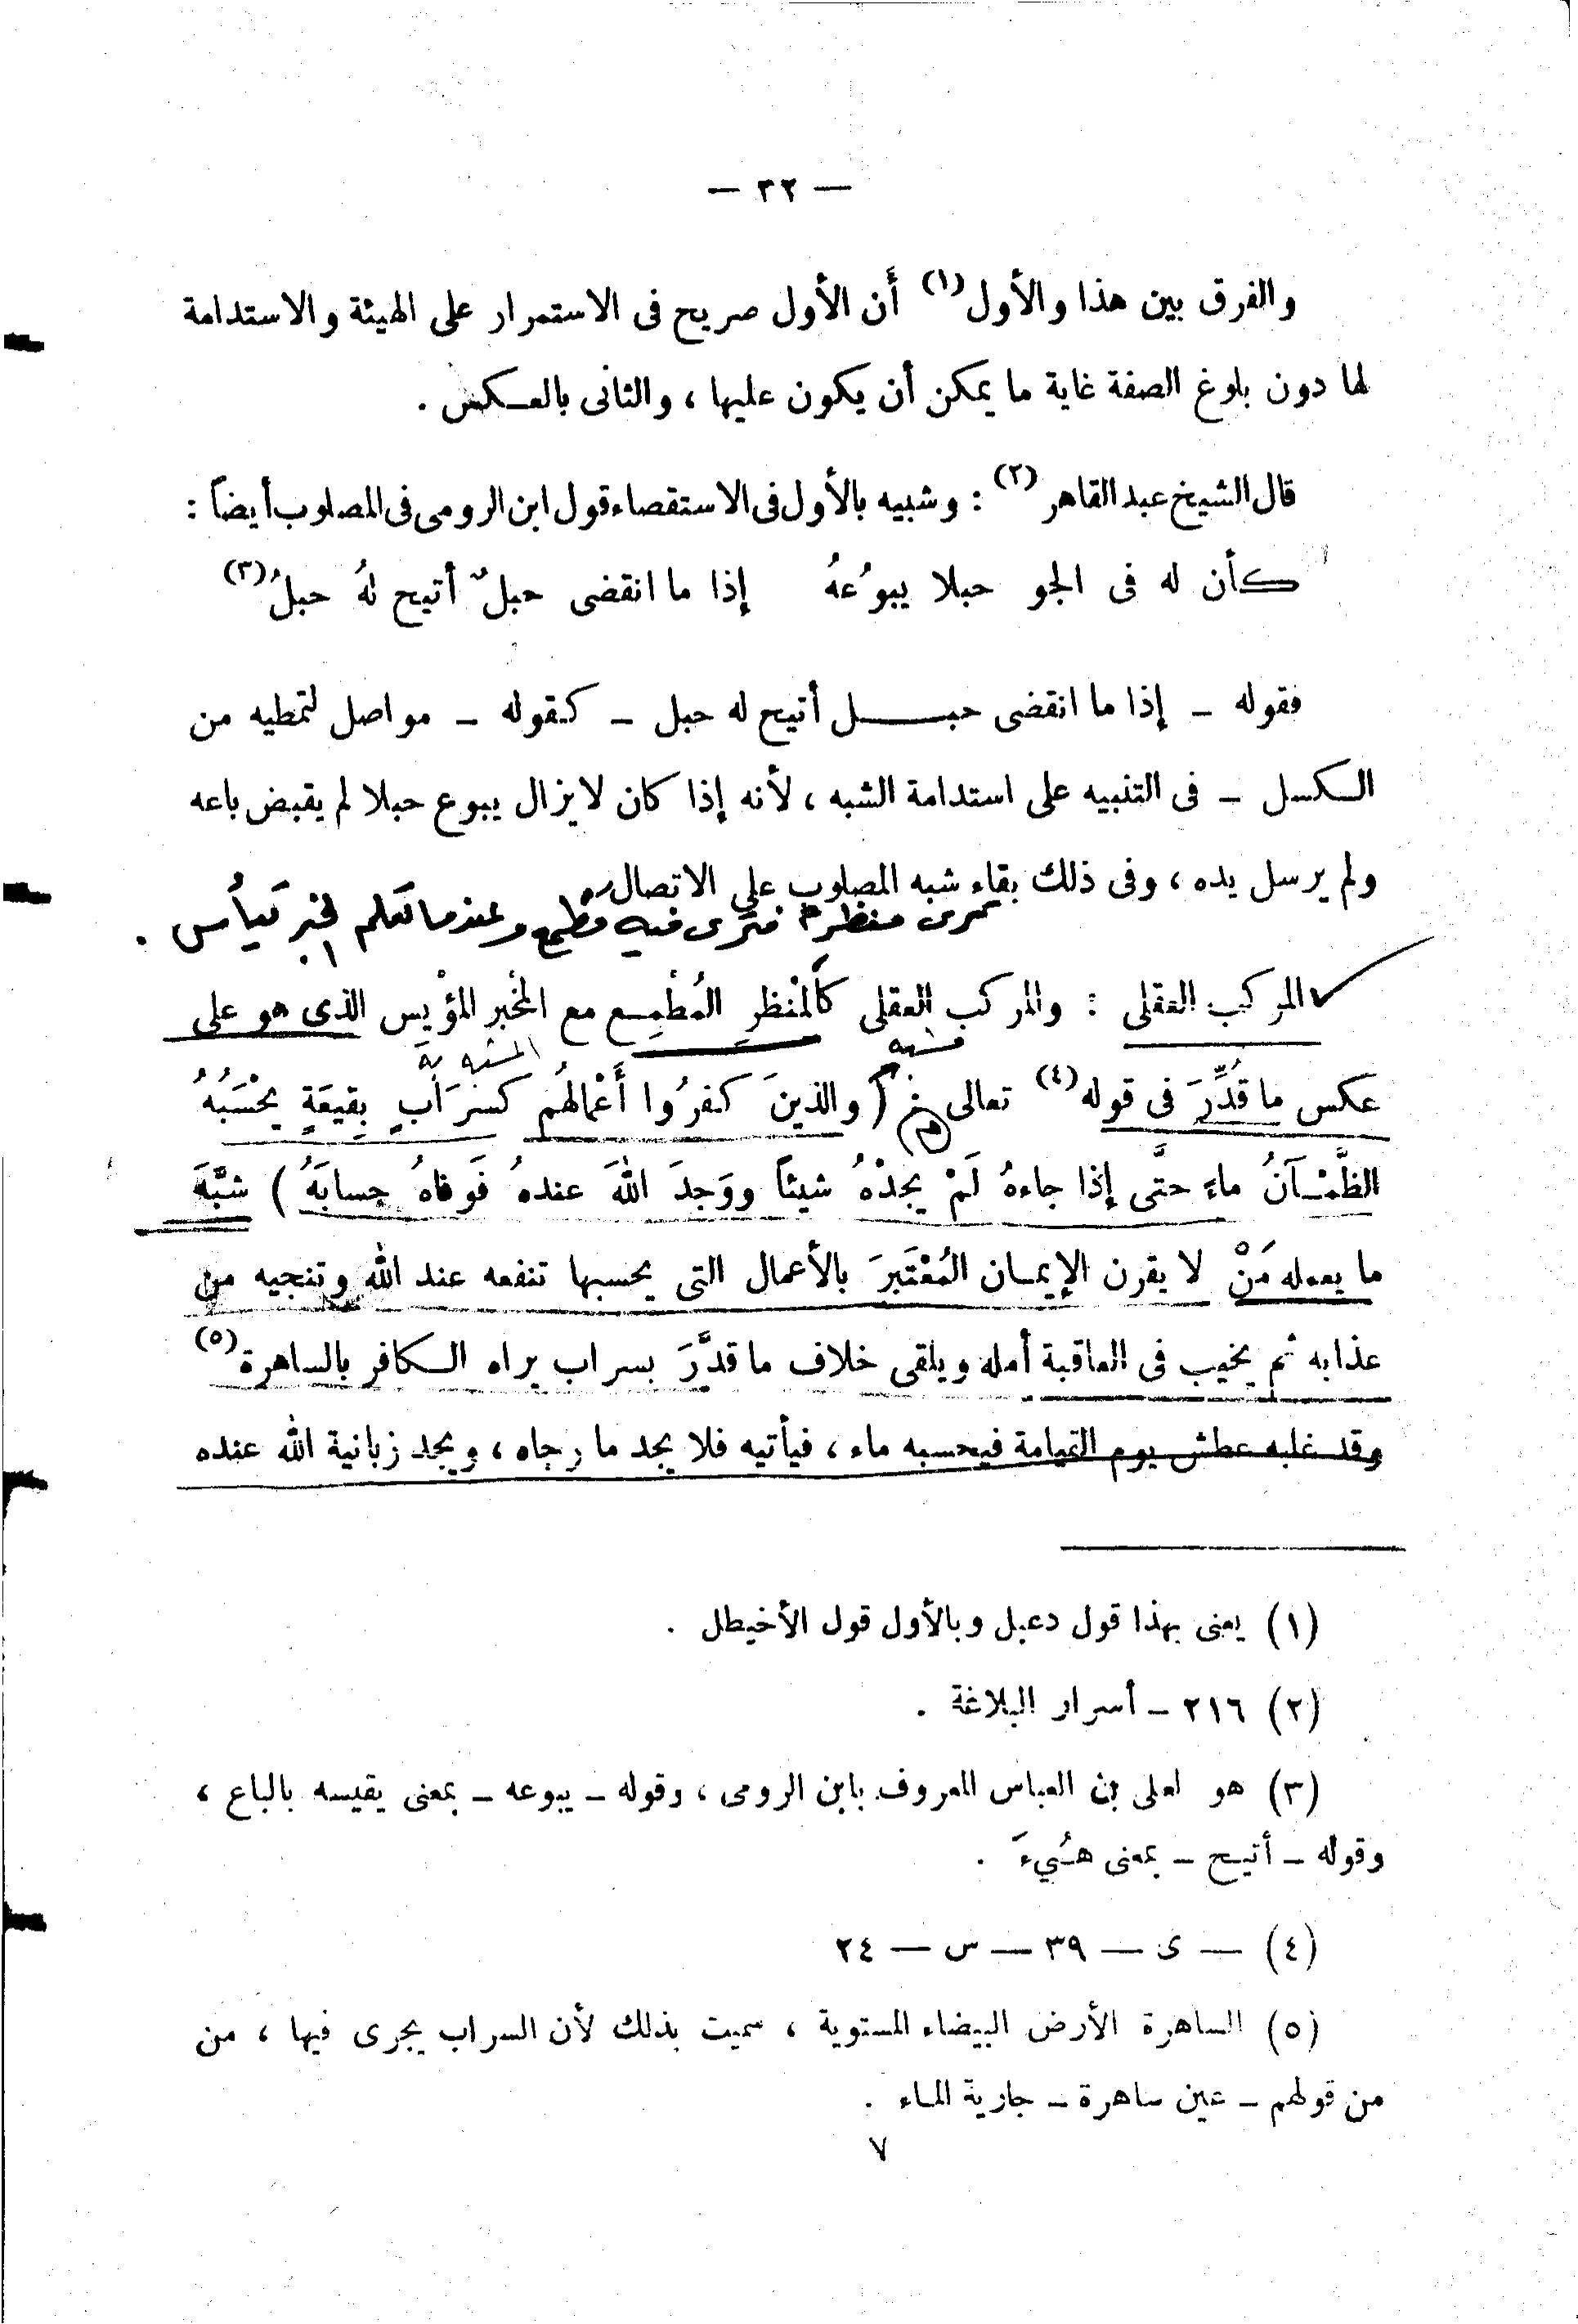 — ٣٢ —
والفرق بين هذا والأول (١) أن الأول صريح فى الاستمرار على الهيئة والاستدامة
لها دون بلوغ الصفة غاية ما يمكن أن يكون عليها ، والثانى بالعكس .
قال الشيخ عبد القاهر (٢) : وشبيه بالأول فى الاستقصاء قول ابن الرومى فى المصلوب أيضاً :
كأن له فى الجو حبلا يبوُعهُ إذا ما انقضى حبلٌ أتيح لهُ حبلُ (٣)
فقوله – إذا ما انقضى حبل أتيح له حبل – كقوله – مواصل لتمطيه من
الكسل – فى التنبيه على استدامة الشبه ، لأنه إذا كان لا يزال يبوع حبلا لم يقبض باعه
ولم يرسل يده ، وفى ذلك بقاء شبه المصلوب على الاتصال .
ترى منظرا فترى فيه مطمع وعندما تعلم الخبر تيأس .
المركب العقلى : والمركب العقلى كالمنْظرِ المُطْمِع مع المَخْبر المؤْيِس الذى هو على
مشبه المشبه به
عكس ما قُدِّرَ فى قوله (٤) تعالى : ( والذينَ كفرُوا أَعْمالهُم كسرَابٍ بِقِيعَةٍ يحْسَبُهُ
الظَّمْآنُ ماءً حتَّى إذا جاءهُ لَمْ يجدْهُ شيئاً ووَجدَ اللهَ عندهُ فَوفاهُ حِسابَهُ ) شبَّهَ
ما يعمله مَنْ لا يقرن الإيمان المُعْتَبَرَ بالأعمال التى يحسبها تنفعه عند الله وتنجيه من
عذابه ثم يخيب فى العاقبة أمله ويلقى خلاف ما قدَّرَ بسراب يراه الكافر بالساهرة (٥)
وقد غلبه عطش يوم القيامة فيحسبه ماء ، فيأتيه فلا يجد ما رجاه ، ويجد زبانية الله عنده
(١) يعنى بهذا قول دعبل وبالأول قول الأخيطل .
(٢) ٢١٦ – أسرار البلاغة .
(٣) هو لعلى بن العباس المعروف بابن الرومى ، وقوله – يبوعه – بمعنى يقيسه بالباع ،
وقوله – أتيح – بمعنى هُيِّءَ .
(٤) — ى — ٣٩ — س — ٢٤
(٥) الساهرة الأرض البيضاء المستوية ، سميت بذلك لأن السراب يجرى فيها ، من
من قولهم – عين ساهرة – جارية الماء .
٧